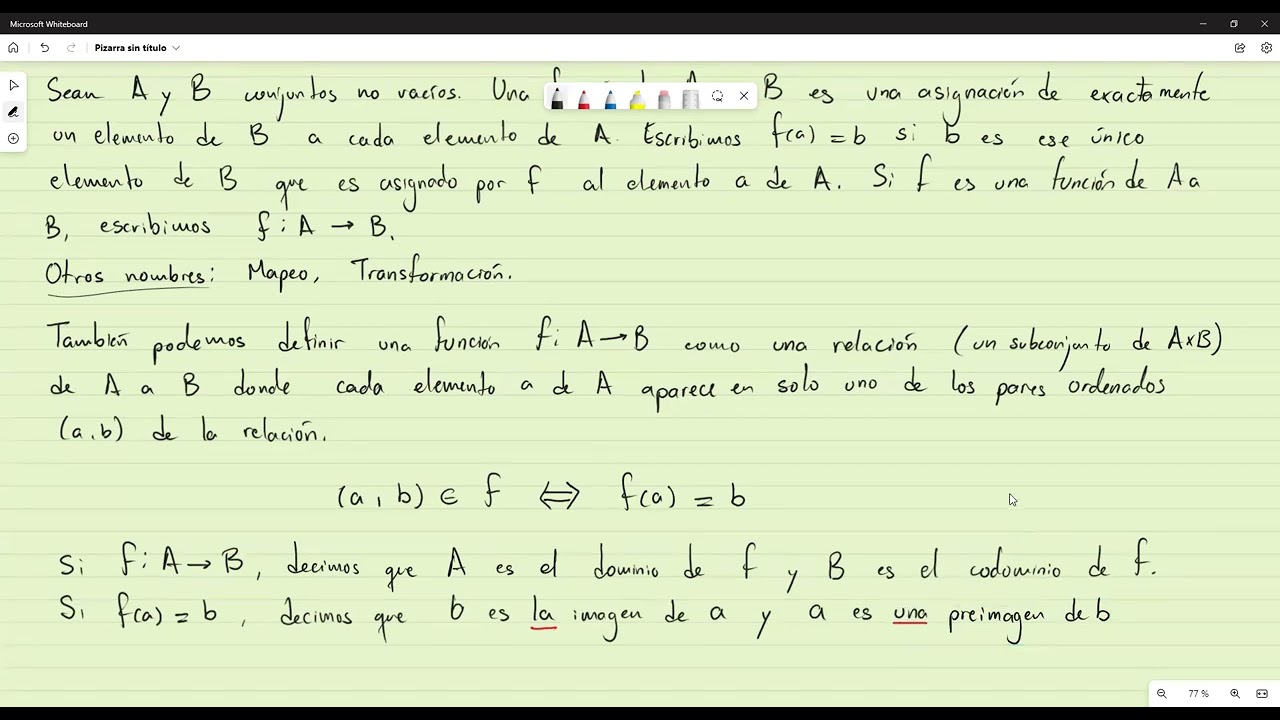 Microsoft Whiteboard
Pizarra sin título
Sean A y B conjuntos no vacíos. Una B es una asignación de exactamente
un elemento de B a cada elemento de A. Escribimos f(a) = b si b es ese único
elemento de B que es asignado por f al elemento a de A. Si f es una función de A a
B, escribimos f : A → B.
Otros nombres: Mapeo, Transformación.
También podemos definir una función f: A → B como una relación (un subconjunto de A×B)
de A a B donde cada elemento a de A aparece en solo uno de los pares ordenados
(a,b) de la relación.
(a, b) ∈ f ⇔ f(a) = b
Si f: A → B, decimos que A es el dominio de f y B es el codominio de f.
Si f(a) = b, decimos que b es la imagen de a y a es una preimagen de b
77 %